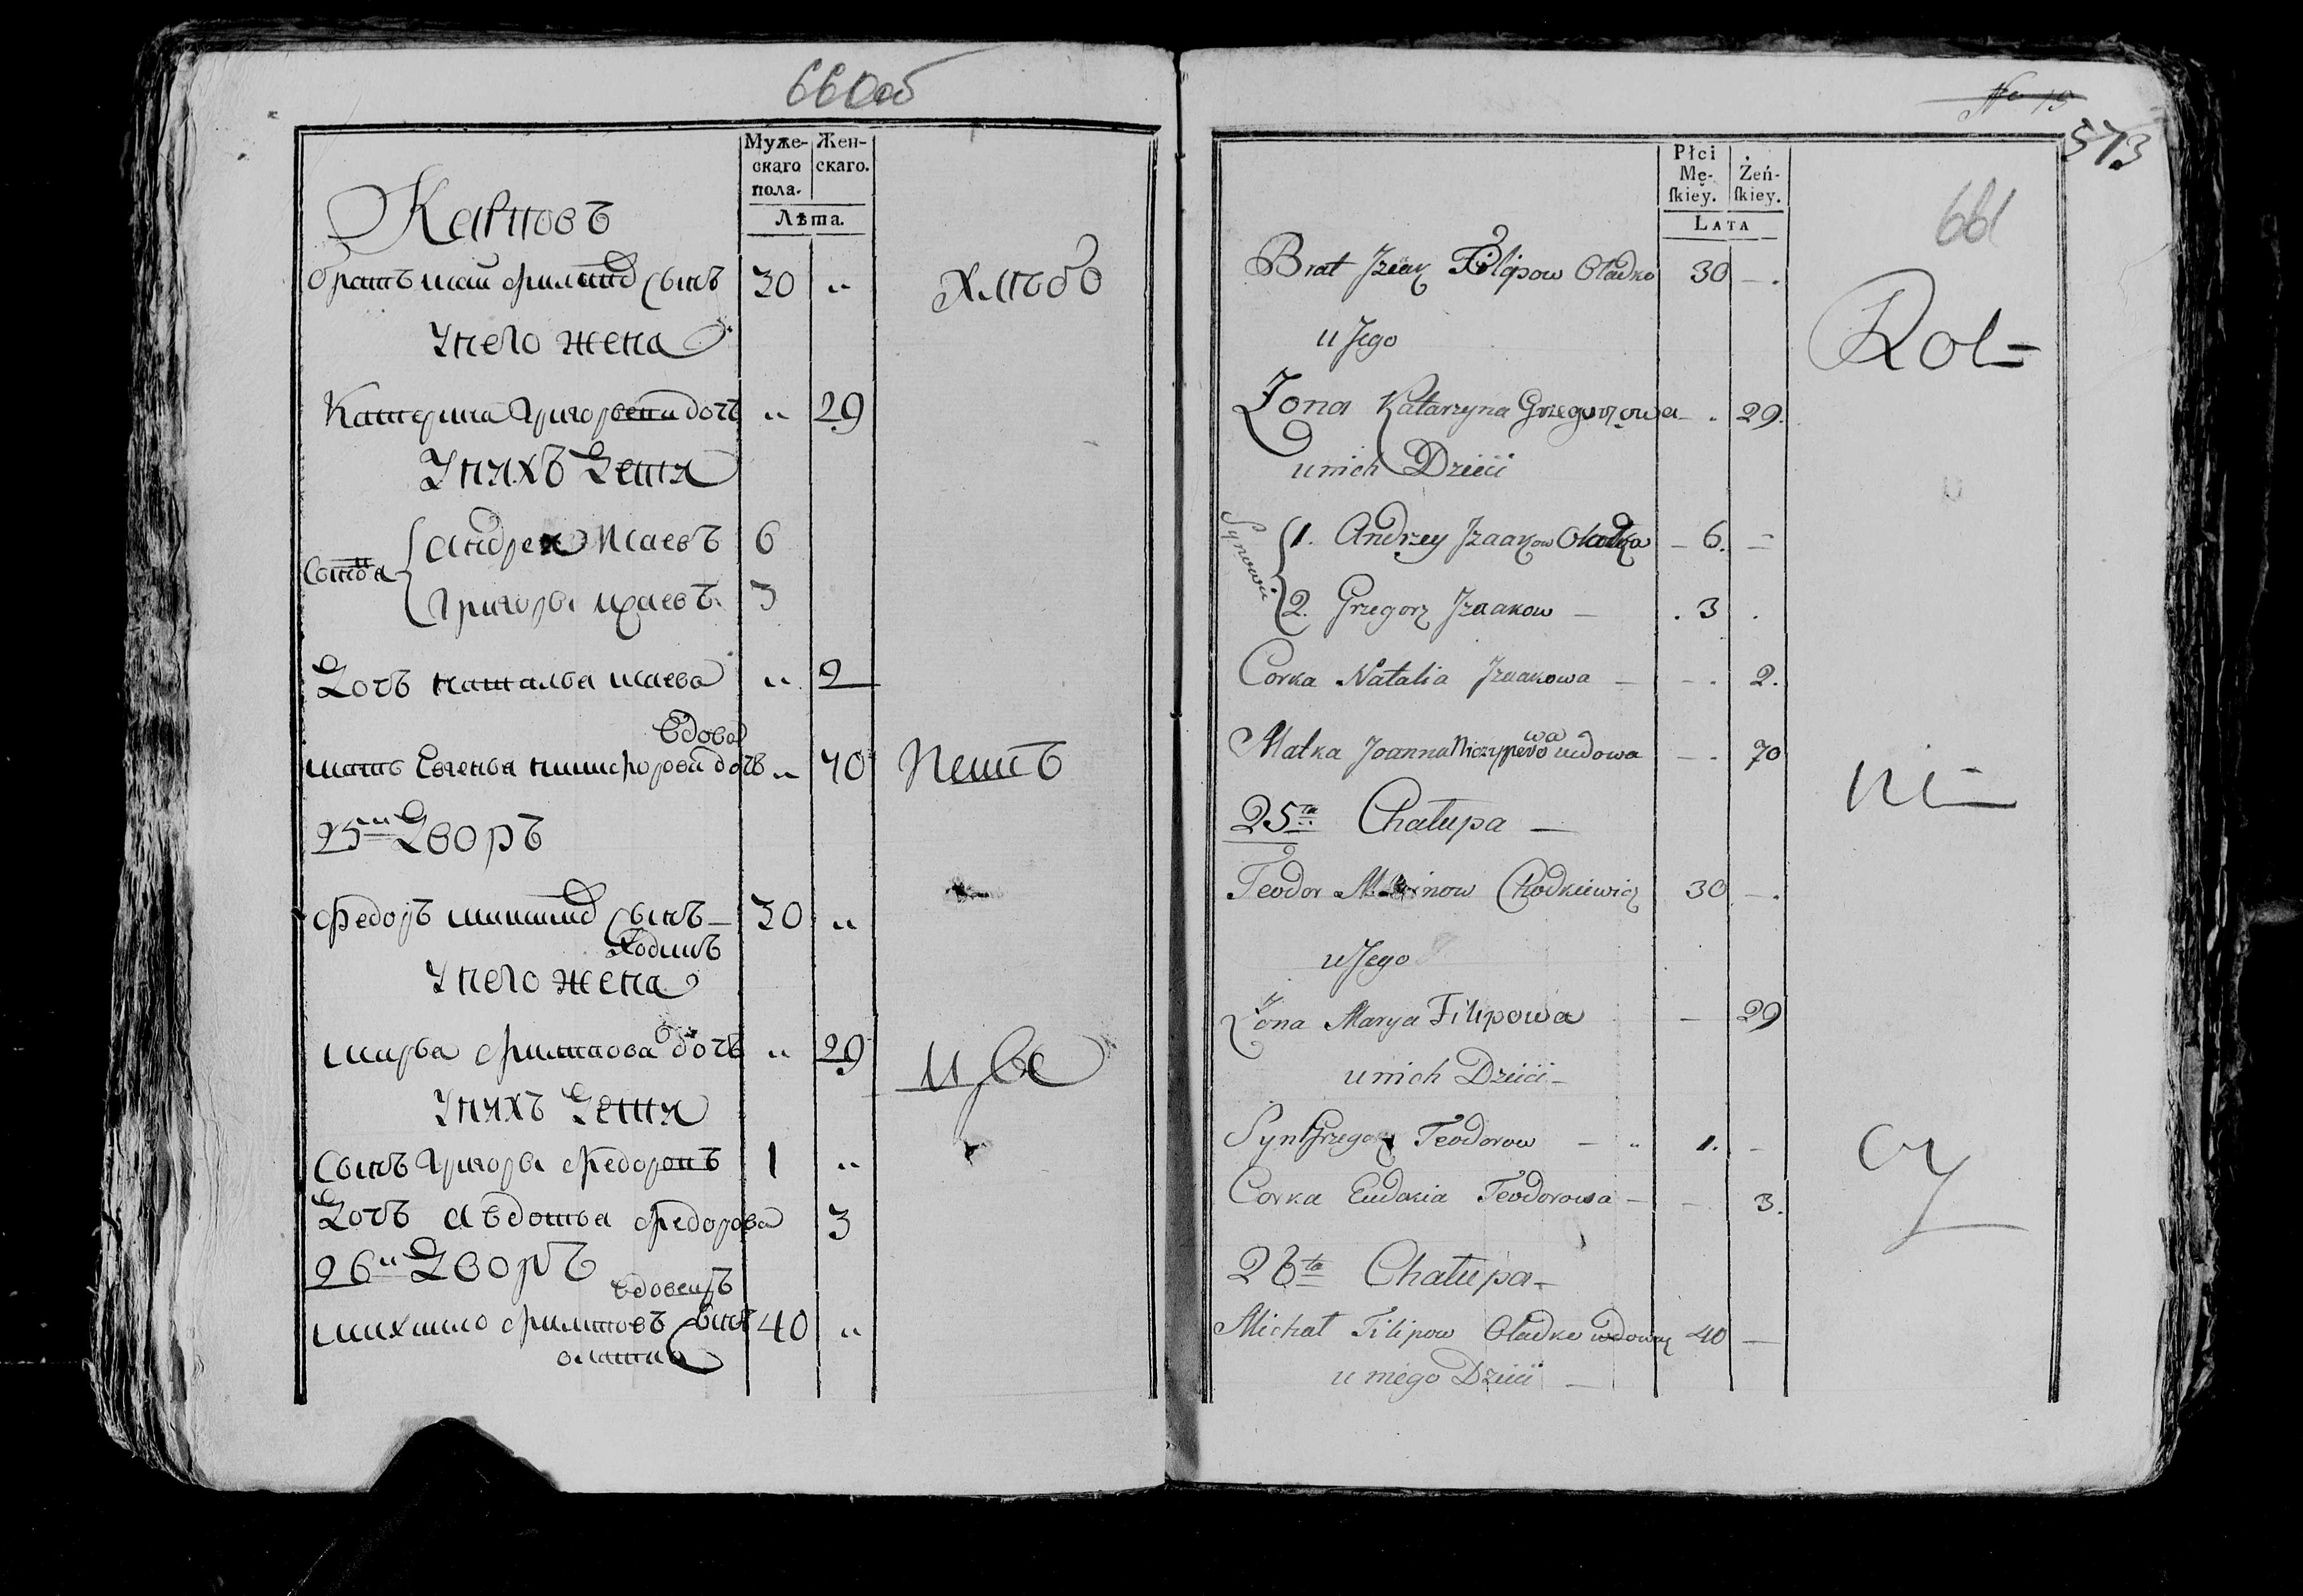 660об
Муже-
скаго
пола.
Жен-
скаго.
Лѣта.
Карповъ
братъ исай филипов сынъ 30 "
Унего жена
Катерина Григорьева дочь " 29
Унихъ Дети
Сыновья
Андрей исаевъ 6
Григорьи исаевъ 3
Дочь наталья исаева " 2
вдова
мать Евгенья никифорова дочь " 70
25й Дворъ
федоръ сынъ 30 "
Ходинъ
Унего жена
марья филипова дочь " 29
Унихъ Дети
Сынъ Григорьи федоровъ 1 "
Дочь авдотья федорова 3
26й Дворъ
вдовецъ
михаило филиповъ сынъ 40 "
оладка
хлѣбо
пашъ
цы
No 15
573
661
Płci
Mę-
skiey.
Żeń-
skiey.
LATA
Brat Jzaak Filipow Oładko 30 -.
u Jego
Żona Katarzyna Grzegorzowa - . 29.
u nich Dzieci
Synowie
1. Andrzey Jzaakow Oładko - 6. -
2. Grzegorz Jzaakow - . 3 .
Corka Natalia Jzaakowa - - . 2.
wa
Matka Joanna Niczyporo wdowa - . 70
25ta Chałupa -
Teodor Chodkiewicz 30 -.
u Jego
Żona Marya Filipowa - 29
u nich Dzieci -
Syn Grzegorz Teodorow - " 1. -
Corka Eudokia Teodorowa - - 3.
26ta Chałupa -
Michał Filipow Oładko wdowiec 40 -
u niego Dzieci -
Rol=
ni-
cy